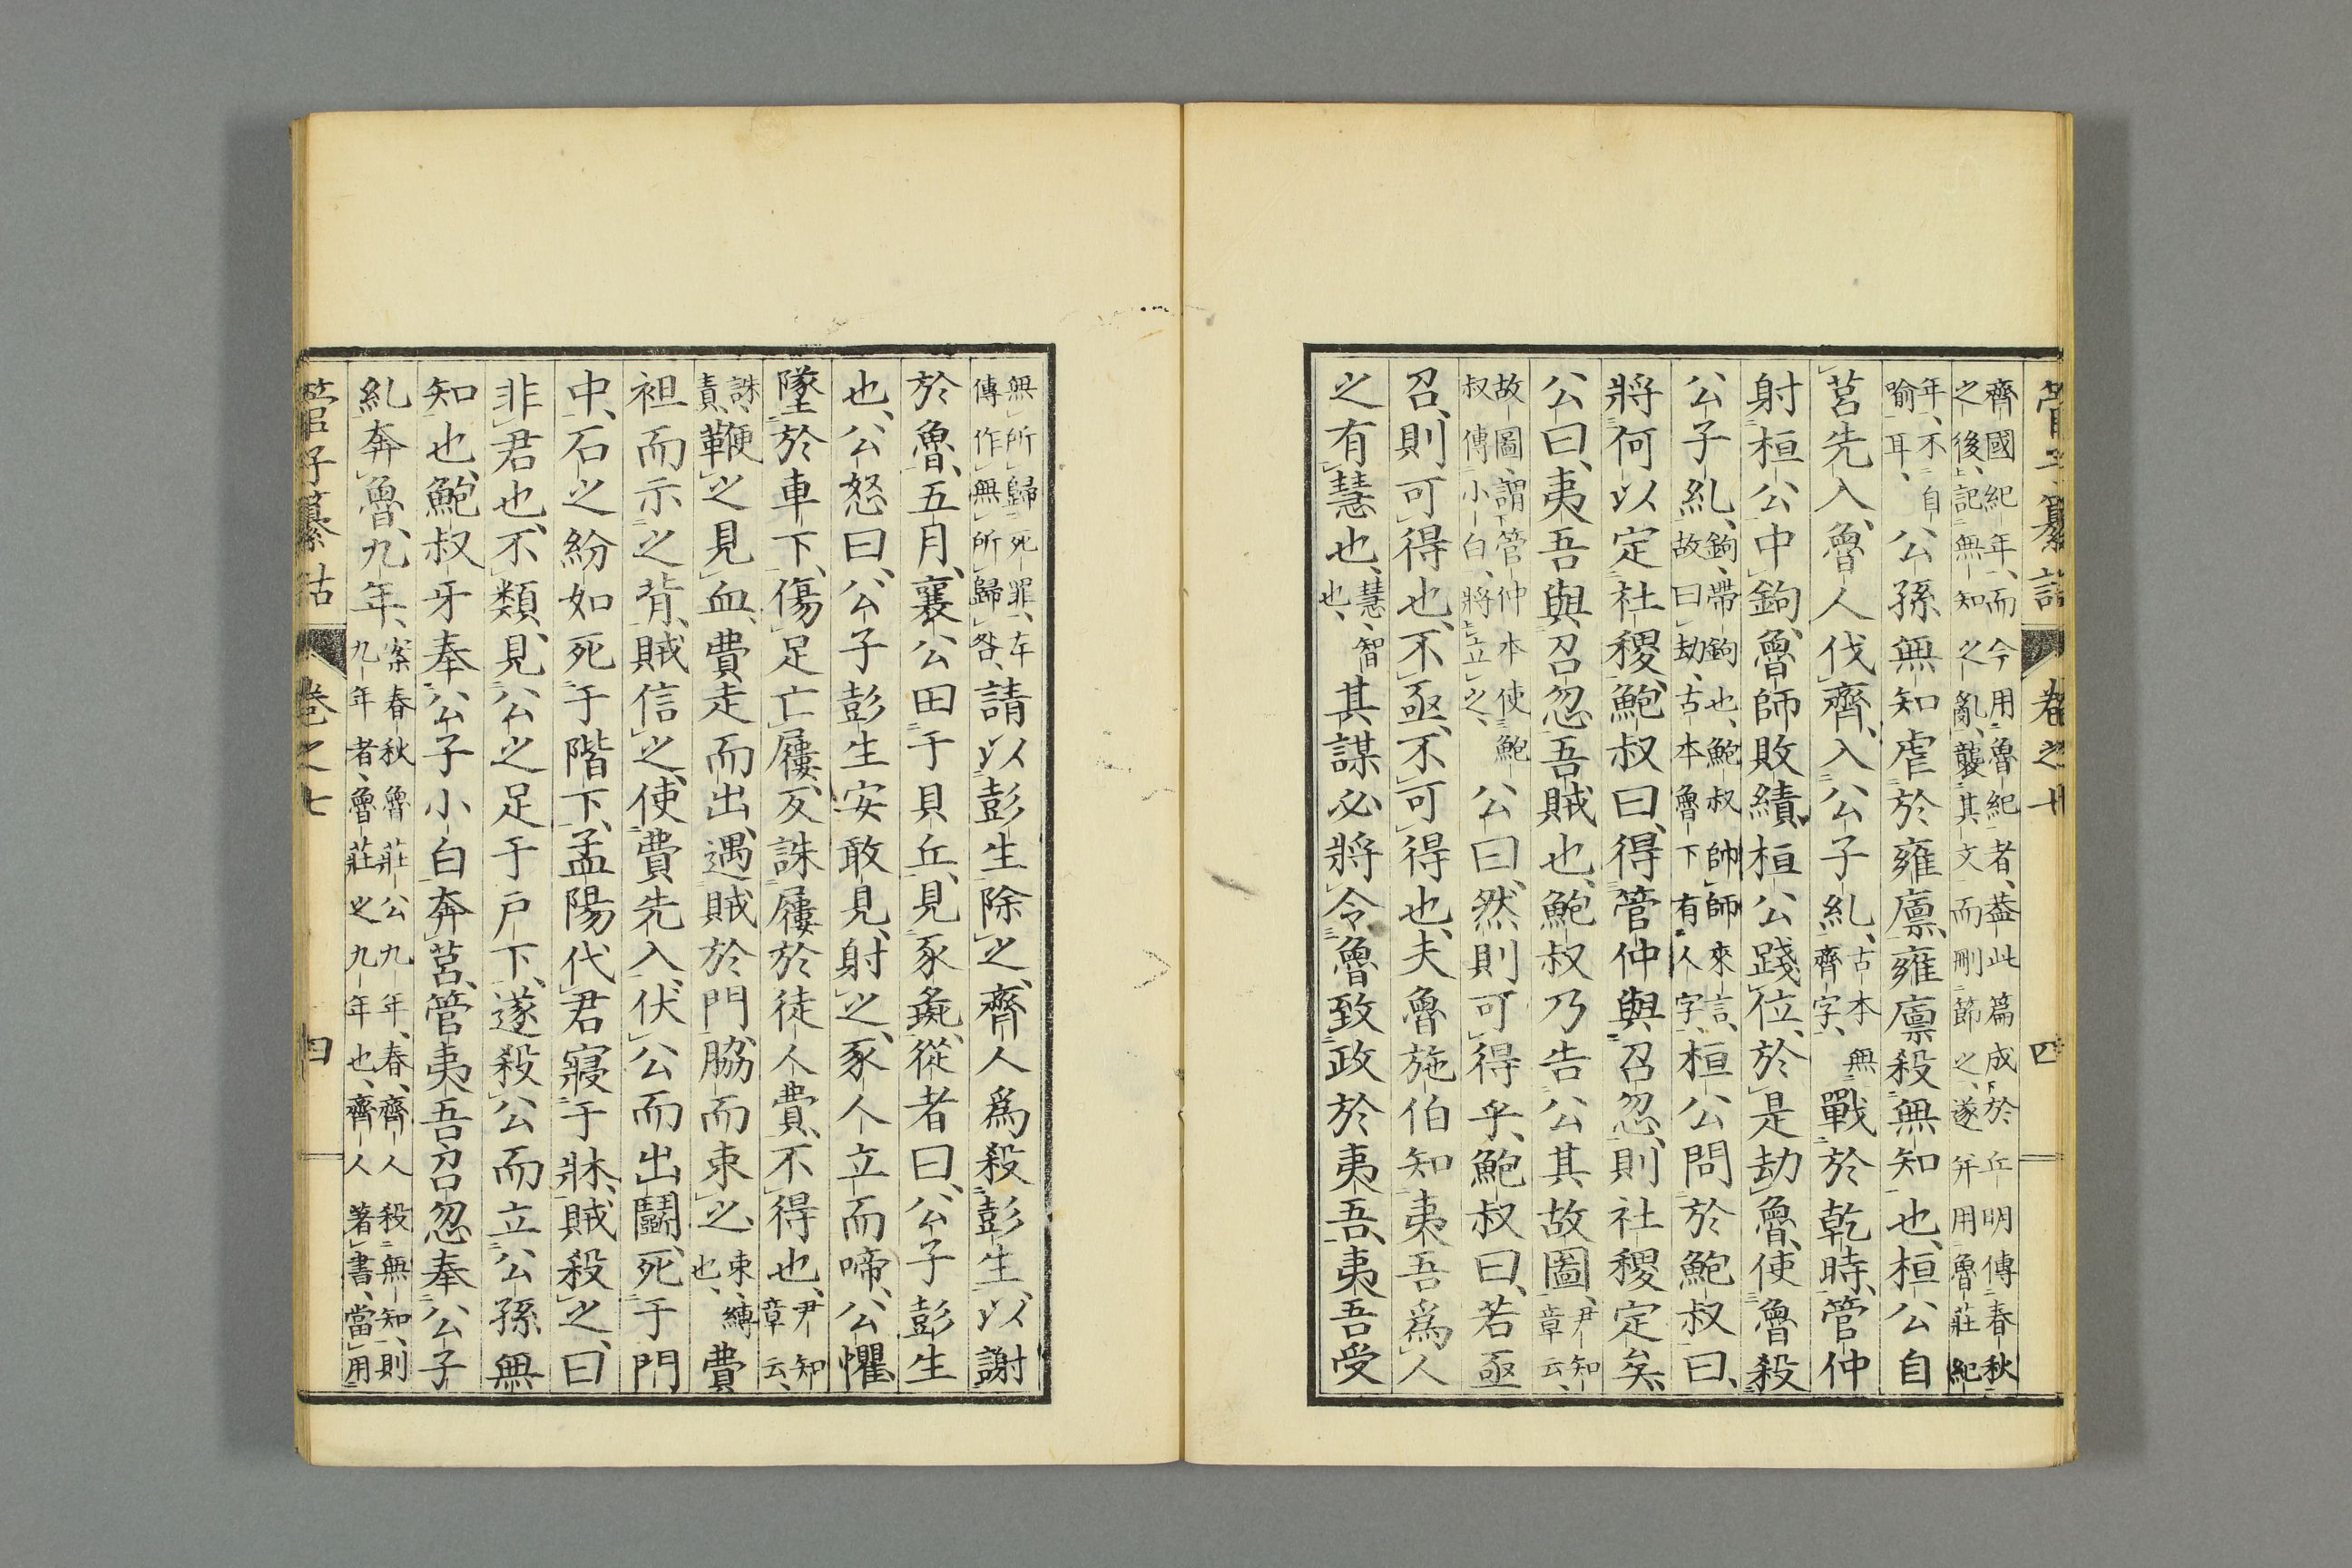 管子纂詁 卷之七 四
齊國紀年、而今用魯紀者、蓋此篇成於丘明傳春秋
之後、記無知之亂、襲其文而刪節之、遂幷用魯莊紀
年、不自
喻耳、
公孫無知虐於雍廩、雍廩殺無知也、桓公自
莒先入、魯人伐齊、入公子糺、
古本無
齊字、
戰於乾時、管仲
射桓公中鉤、魯師敗績、桓公踐位、於是劫魯、使魯殺
公子糺、
鉤、帶鉤也、鮑叔帥師來言、
故曰劫、古本魯下有人字、
桓公問於鮑叔曰、
將何以定社稷、鮑叔曰、得管仲與召忽、則社稷定矣、
公曰、夷吾與召忽、吾賊也、鮑叔乃告公其故圖、
尹知
章云、
故圖、謂管仲本使鮑
叔傅小白、將立之、
公曰、然則可得乎、鮑叔曰、若亟
召、則可得也、不亟、不可得也、夫魯施伯知夷吾爲人
之有慧也、
慧、智
也、
其謀必將令魯致政於夷吾、夷吾受
無所歸死罪、左
傳作無所歸咎、
請以彭生除之、齊人爲殺彭生、以謝
於魯、五月、襄公田于貝丘、見豕彘、從者曰、公子彭生
也、公怒曰、公子彭生安敢見、射之、豕人立而啼、公懼
墜於車下、傷足亡屨、反誅屨於徒人費、不得也、
尹知
章云、
誅、
責、
鞭之見血、費走而出、遇賊於門、脇而束之、
束、縛
也、
費
袒而示之背、賊信之、使費先入、伏公而出鬭、死于門
中、石之紛如死于階下、孟陽代君寢于牀、賊殺之、曰
非君也、不類、見公之足于戶下、遂殺公而立公孫無
知也、鮑叔牙奉公子小白奔莒、管夷吾召忽奉公子
糺奔魯、九年、
案春秋魯莊公九年、春、齊人殺無知、則
九年者、魯莊之九年也、齊人著書、當用
管子纂詁 卷之七 四